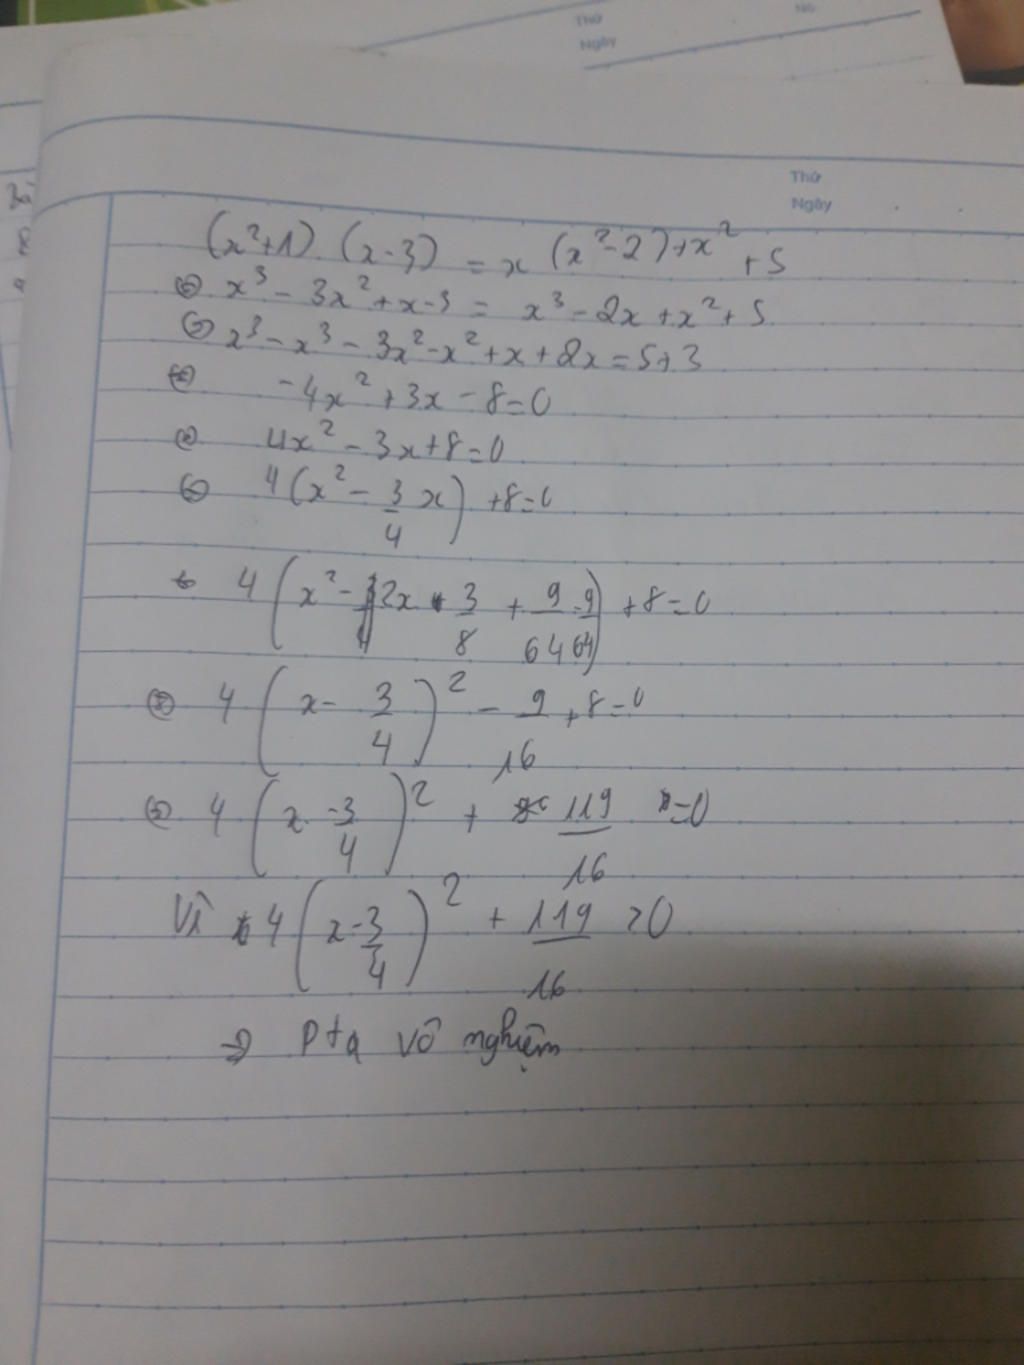 Thứ
No
Ngày
Thứ
Ngày
(x²+1) (x-3) = x (x²-2)+x²+5
⇔ x³ - 3x² + x-3 = x³ - 2x + x² + 5
⇔ x³ - x³ - 3x² - x² + x + 2x = 5+3
⇔ -4x² + 3x - 8 = 0
⇔ 4x² - 3x + 8 = 0
⇔ 4(x² - 3/4 x) + 8 = 0
⇔ 4 (x² - 2x · 3/8 + 9/64 - 9/64) + 8 = 0
⇔ 4 (x - 3/4)² - 9/16 + 8 = 0
⇔ 4 (x - 3/4)² + 119/16 = 0
Vì 4 (x - 3/4)² + 119/16 > 0
⇒ Pta vô nghiệm